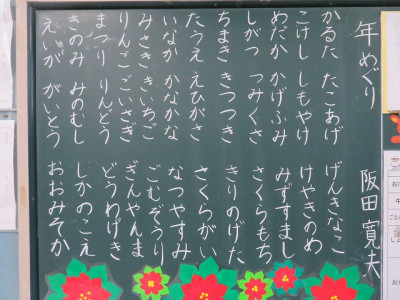 年めぐり 阪田寛夫
かるた たこあげ げんきなこ
こけし しもやけ けやきのめ
めだか かげふみ みずすまし
しがつ つみくさ さくらもち
ちまき きつつき きりのげた
たうえ えひがさ さくらがい
いなか かなかな なつやすみ
みさき きいちご ごむぞうり
りんご ごいさぎ ぎんやんま
まつり りんどう どうわげき
きのみ みのむし しかのこえ
えいが がいとう おおみそか